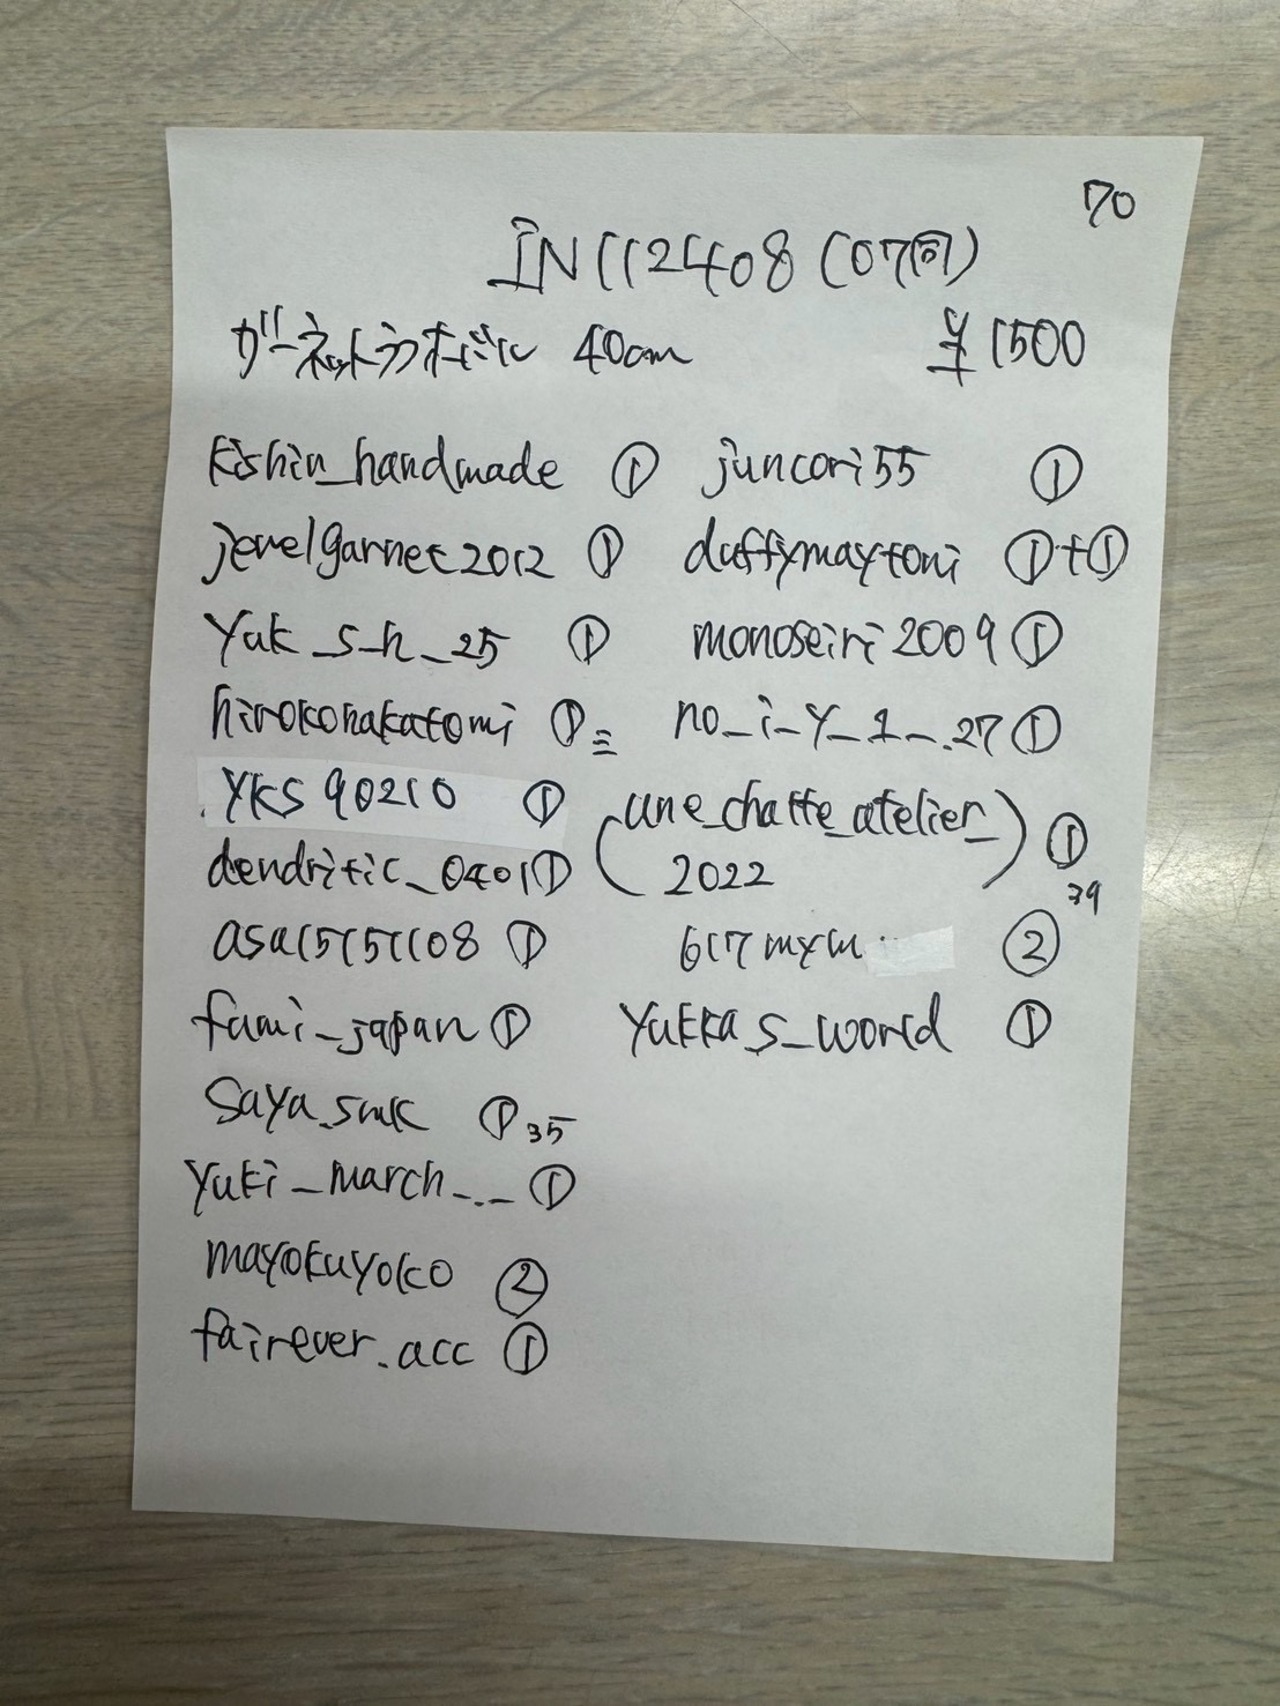 70
IN112408 (07同)
ガーネットラフボール 40cm ¥1500
kishin_handmade ①
jewelgarnet2012 ①
yuk_s_h_25 ①
hirokonakatomi ①
yks90210 ①
dendritic_0401 ①
asa15151108 ①
fumi_japan ①
saya.smk ① 35
yuki_march_._ ①
mayokuyoko ②
fairever.acc ①
juncori55 ①
duffymaytomi ①+①
monoseiri2009 ①
no_i_y_1_.27 ①
(une_chatte_atelier_
2022) ①
39
617mym ②
yukkas_world ①